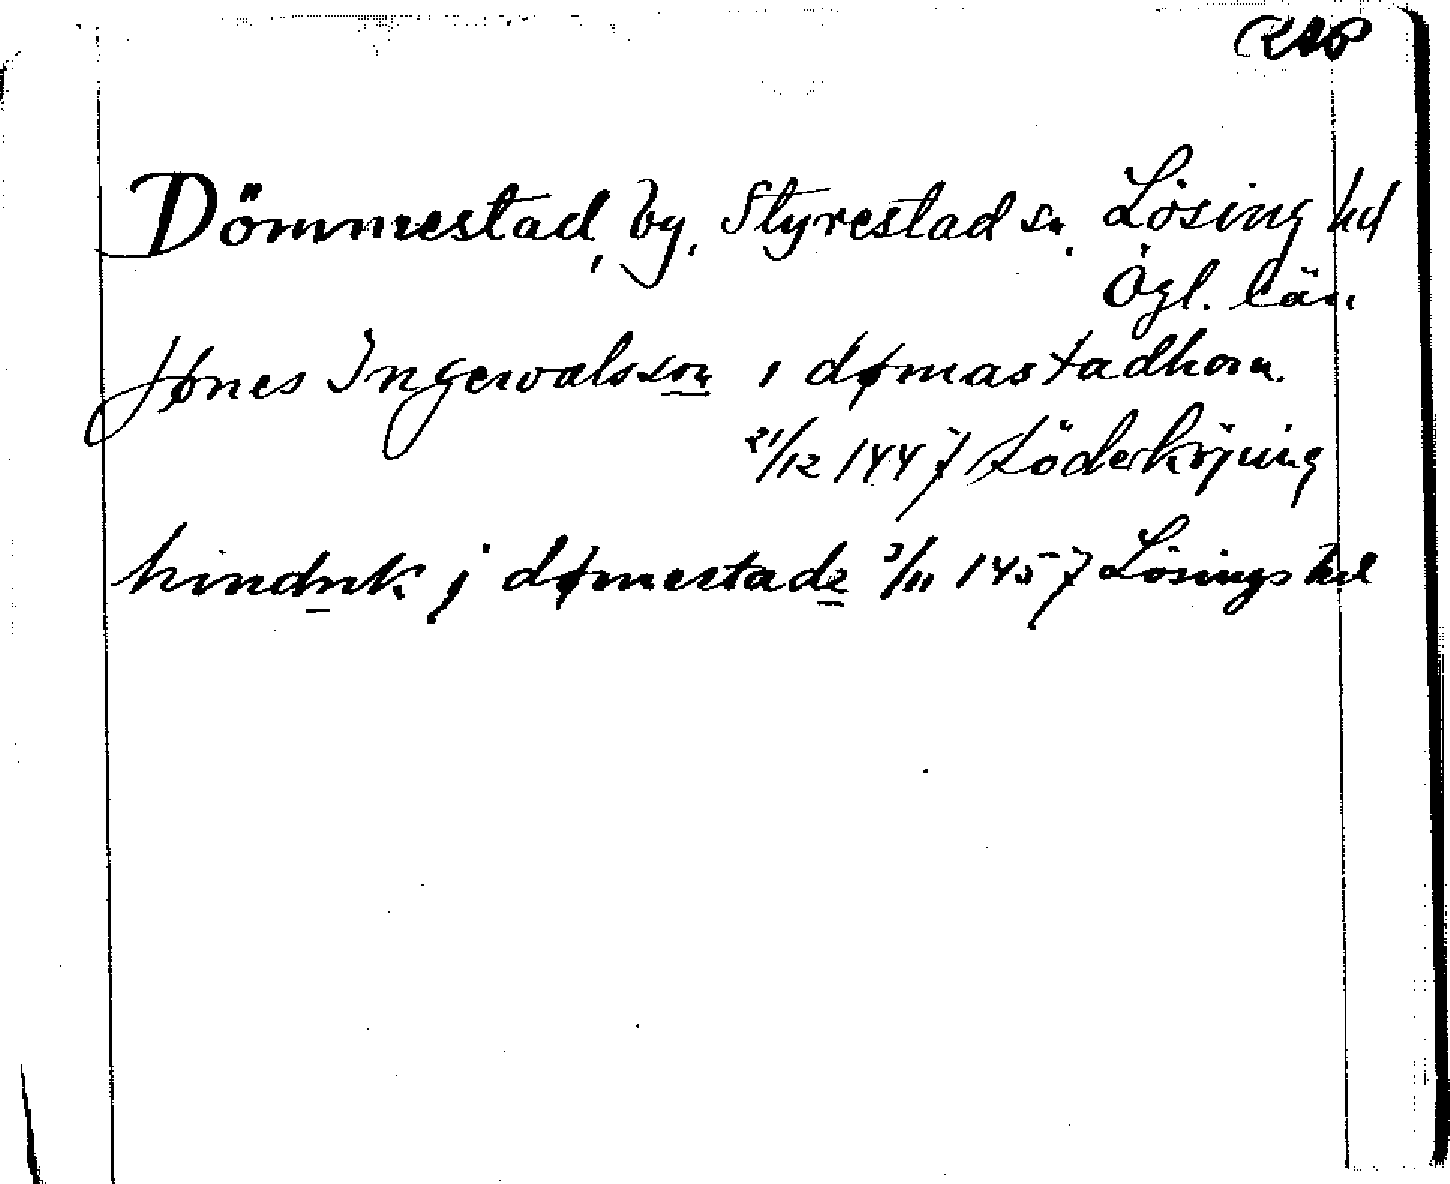 RAP
Dömmestad, by, Styrestad sn. Lösing hd
Ögl. län
Jønes Ingewalsson i dømastadhom.
21/12 1447 Söderköping
hindrik j dømestade 3/11 1457 Lösings hd